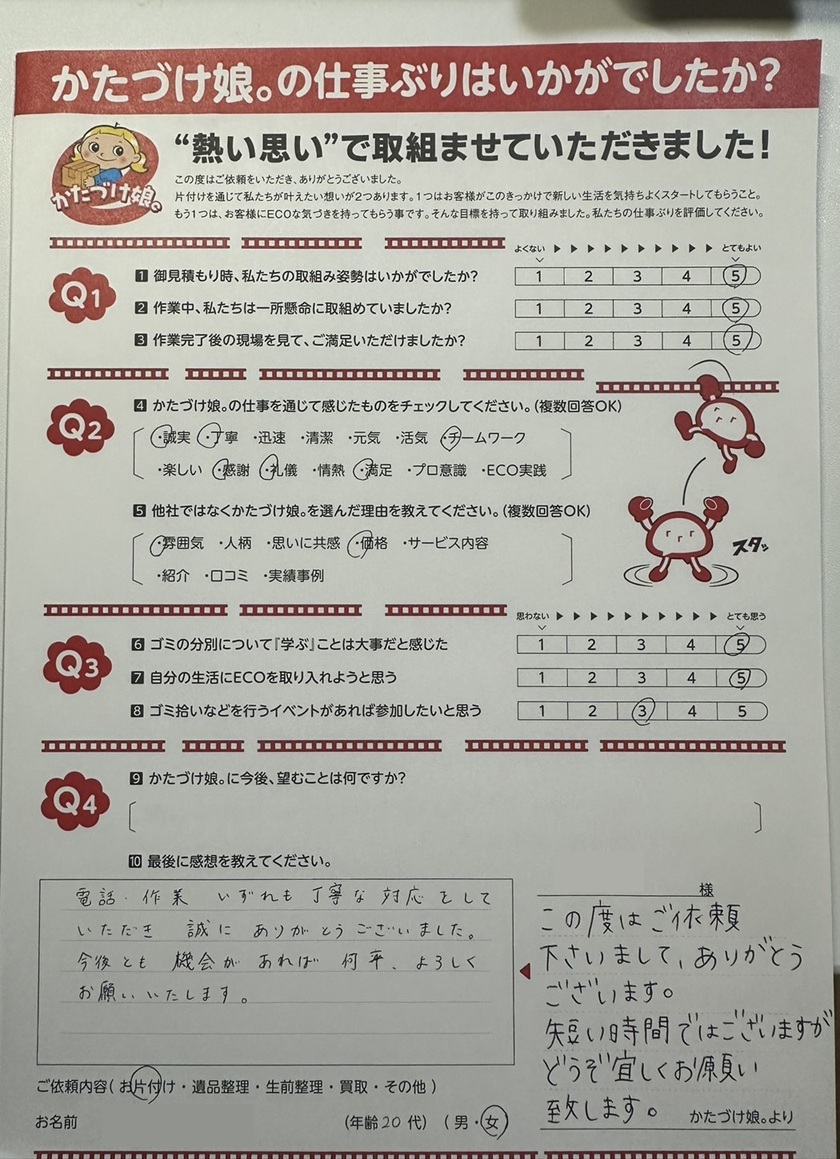 かたづけ娘。の仕事ぶりはいかがでしたか？
かたづけ娘。
“熱い思い”で取組ませていただきました！
この度はご依頼をいただき、ありがとうございました。
片付けを通じて私たちが叶えたい想いが2つあります。1つはお客様がこのきっかけで新しい生活を気持ちよくスタートしてもらうこと。
もう1つは、お客様にECOな気づきを持ってもらう事です。そんな目標を持って取り組みました。私たちの仕事ぶりを評価してください。
よくない ▶ ▶ ▶ ▶ ▶ ▶ ▶ ▶ ▶ ▶ とてもよい
Q1
1 御見積もり時、私たちの取組み姿勢はいかがでしたか？ 1 2 3 4 5
2 作業中、私たちは一所懸命に取組めていましたか？ 1 2 3 4 5
3 作業完了後の現場を見て、ご満足いただけましたか？ 1 2 3 4 5
Q2
4 かたづけ娘。の仕事を通じて感じたものをチェックしてください。（複数回答OK）
・誠実 ・丁寧 ・迅速 ・清潔 ・元気 ・活気 ・チームワーク
・楽しい ・感謝 ・礼儀 ・情熱 ・満足 ・プロ意識 ・ECO実践
5 他社ではなくかたづけ娘。を選んだ理由を教えてください。（複数回答OK）
・雰囲気 ・人柄 ・思いに共感 ・価格 ・サービス内容
・紹介 ・口コミ ・実績事例
スタッ
思わない ▶ ▶ ▶ ▶ ▶ ▶ ▶ ▶ ▶ ▶ とても思う
Q3
6 ゴミの分別について『学ぶ』ことは大事だと感じた 1 2 3 4 5
7 自分の生活にECOを取り入れようと思う 1 2 3 4 5
8 ゴミ拾いなどを行うイベントがあれば参加したいと思う 1 2 3 4 5
Q4
9 かたづけ娘。に今後、望むことは何ですか？
10 最後に感想を教えてください。
電話・作業 いずれも丁寧な対応をして
いただき 誠に ありがとうございました。
今後とも 機会が あれば 何卒、よろしく
お願いいたします。
様
この度はご依頼
下さいまして、ありがとう
ございます。
短い時間ではございますが
どうぞ宜しくお願い
致します。
かたづけ娘。より
ご依頼内容（ お片付け・遺品整理・生前整理・買取・その他 ）
お名前 （年齢 20 代） （ 男・女 ）